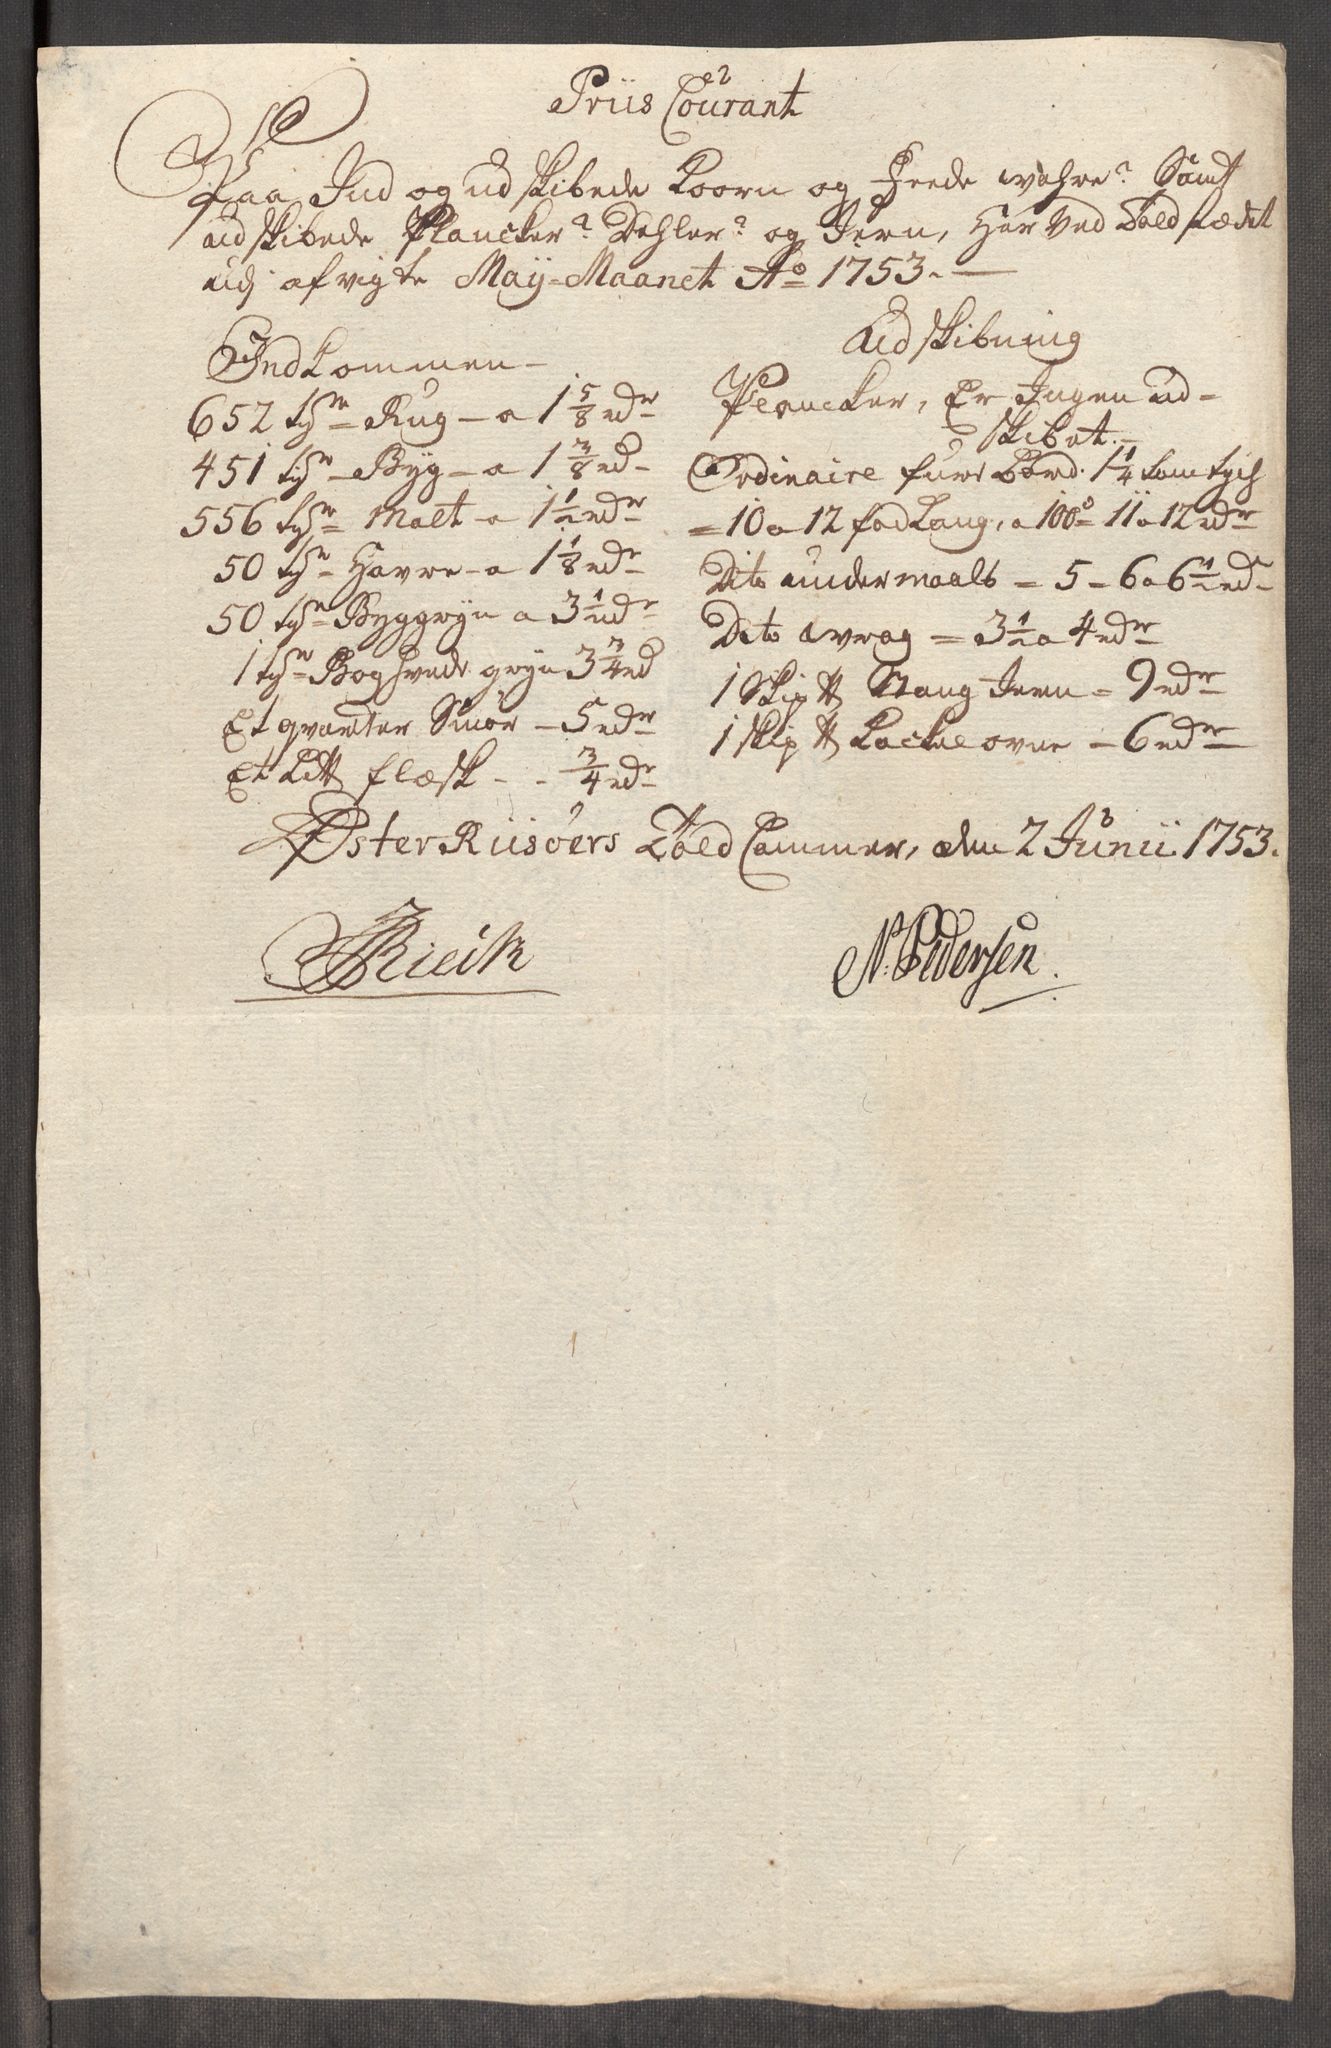 Priis Courant
Paa Ind og udskibede Koorn og Feede wahre Samt
udskibede Plancker Dehler og Jern, Her Ved Toldstædet
udj afvigte Maÿ-Maanet Ao 1753.
Indkommen
652 tdr Rug - a 1 5/8 rdr
451 tdr - Byg - a 1 3/8 rd
556 tdr Malt - a 1 1/2 rdr
50 tdr Havre - a 1 1/8 rdr
50 tdr Byggryn a 3 1/2 rdr
1 tdr Boghvede gryn 3 3/4 rd
Et qvarter Smør - 5 rdr
Et Ld ℔ flæsk - - 3/4 rdr
Udskibning
Plancker, Er Ingen ud-
skibet.
Ordinaire furu Bord. 1 1/4 tom tyck
= 10 a 12 fod Lang, a 100de 11 a 12 rdr
Dito undermaals - 5 - 6 a 6 1/2 rdr
Dito wrag = 3 1/2 a 4 rdr
1 Skip ℔ Stang Jern - 9 rdr
1 Skip ℔ Kackelovne - 6 rdr
Øster Riisøers Told Cammer, den 2 Junii 1753.
N. Pedersen.